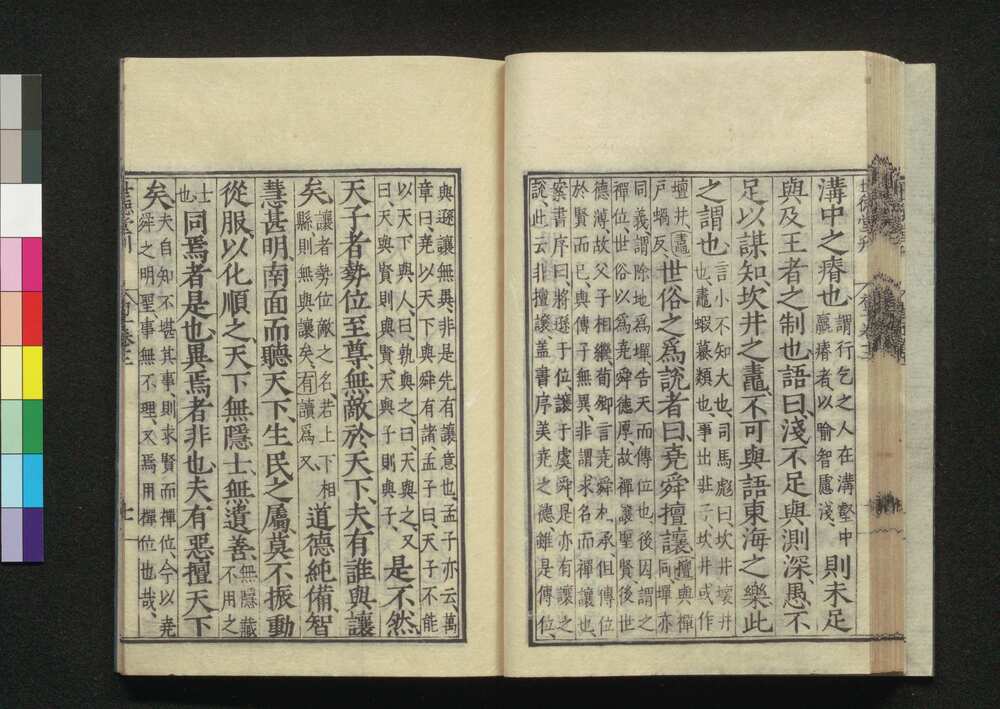 溝中之瘠也
謂行乞之人在溝壑中
羸瘠者以喻智慮淺
則未足
與及王者之制也語曰淺不足與測深愚不
足以謀知坎井之鼃不可與語東海之樂此
之謂也
言小不知大也司馬彪曰坎井壞井
也鼃蝦蟇類也事出莊子坎井或作
壇井鼃
戸蝸反
世俗之爲說者曰堯舜擅讓
擅與禪
同墠亦
同義謂除地爲墠告天而傳位也後因謂之
禪位世俗以爲堯舜德厚故禪讓聖賢後世
德薄故父子相繼荀卿言堯舜相承但傳位
於賢而已與傳子無異非謂求名而禪讓也
案書序曰將遜于位讓于虞舜是亦有讓之
說此云非擅讓蓋書序美堯之德雖是傳位
與遜讓無異非是先有讓意也孟子亦云萬
章曰堯以天下與舜有諸孟子曰天子不能
以天下與人曰孰與之曰天與之又
曰天與賢則與賢天與子則與子
是不然
天子者勢位至尊無敵於天下夫有誰與讓
矣
讓者勢位敵之名若上下相
縣則無與讓矣有讀爲又
道德純備智
慧甚明南面而聽天下生民之屬莫不振動
從服以化順之天下無隱士無遺善
無隱藏
不用之
士
也
同焉者是也異焉者非也夫有惡擅天下
矣
夫自知不堪其事則求賢而禪位今以堯
舜之明聖事無不理又焉用禪位也哉